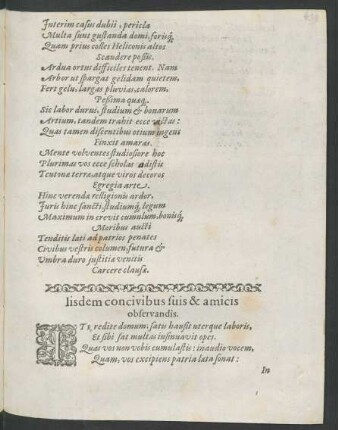 Interim casus dubii, pericla
Multa sunt gustanda domi, forisq́;
Quam prius colles Heliconis altos
Scandere poßis.
Ardua ortus difficiles tenent. Nam
Arbor ut spargat gelidam quietem,
Fert gelu, largas pluvias, calorem,
Peßima quæq;
Sic labor durus, studium & bonarum
Artium, tandem trahit ecce
Quas tamen discentibus otium ingens
Finxit amaras.
Mente volventes studiosiore hoc
Plurimas vos ecce scholas adistis
Teutona terra, atque viros decoros
Egregia arte.
Hinc verenda relligionis ardor,
Juris hinc sancti, studiumq́; legum
Maximum in crevit cumulum, bonisq́;
Moribus aucti
Tenditis læti ad patrios penates
Civibus vestris columen, futura &
Umbra duro justitia venitis
Carcere clausa.
Iisdem concivibus suis & amicis
observandis.
ITE, redite domum, satu hausit uterque laboris,
Et sibi sat multas insinuavit opes.
Quas vos non vobis cumulastis: inaudio vocem,
Quam, vos excipiens patria læta sonat:
In